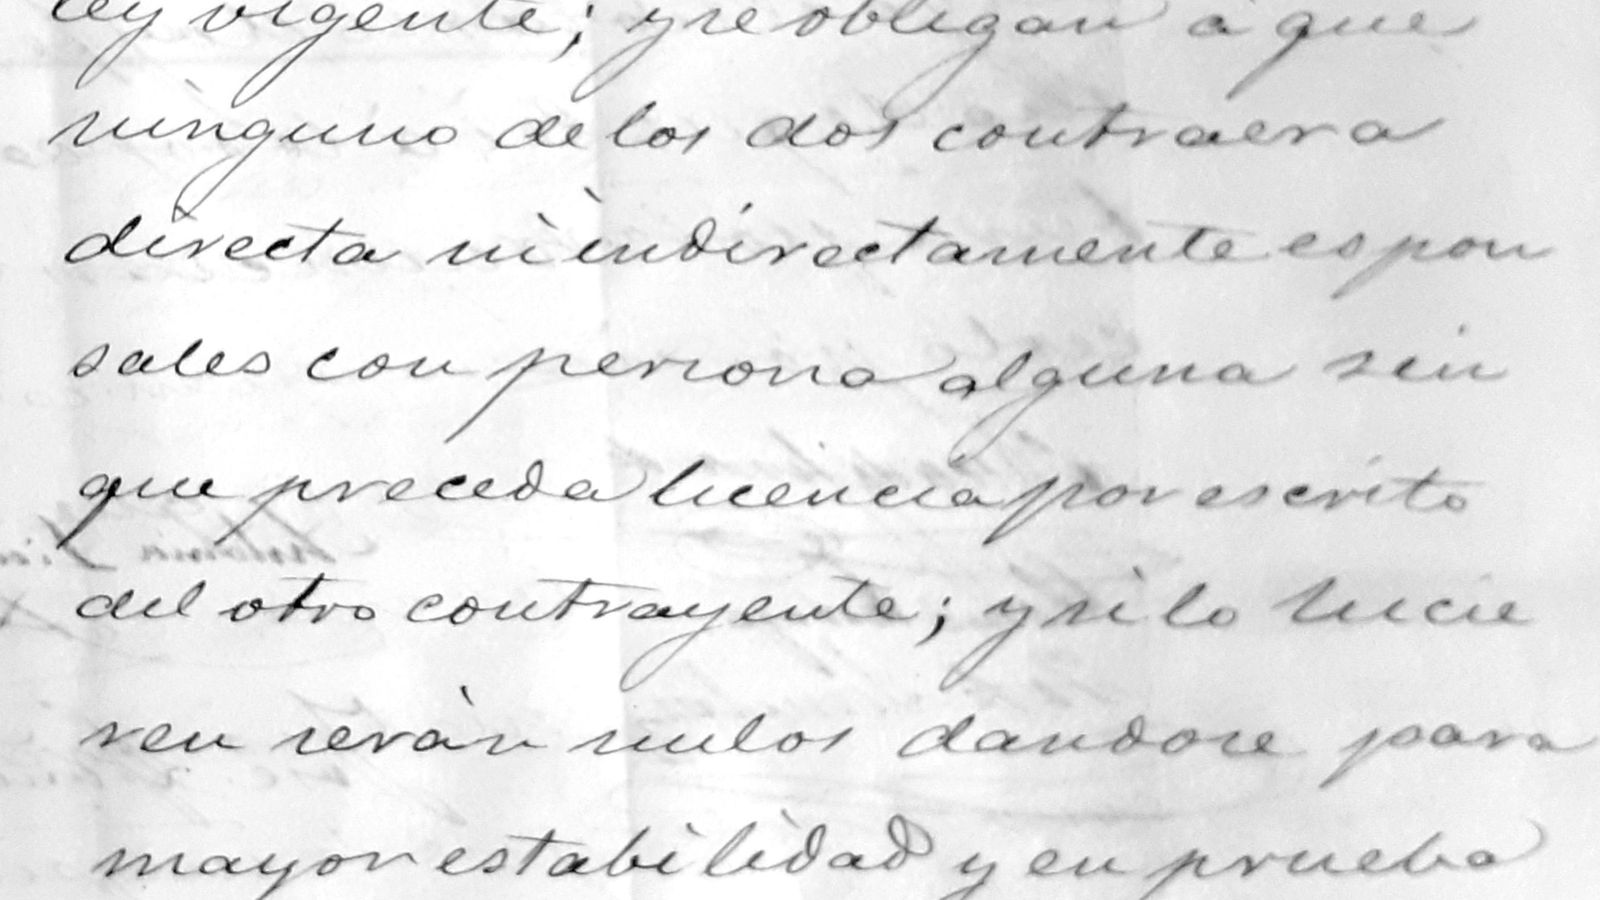 ley vigente; y se obligan à que
ninguno de los dos contraera
directa ni indirectamente espon
sales con persona alguna sin
que preceda licencia por escrito
del otro contrayente; y si lo hicie
ren seràn nulos dandose para
mayor estabilidad y en prueba